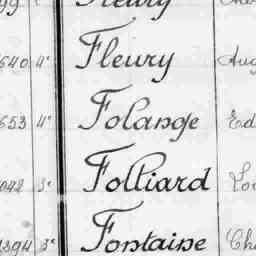 Fleury
640 4e Fleury Aug
653 4e Folange Ed
042 3e Folliard Lou
1394 3e Fontaine Cha